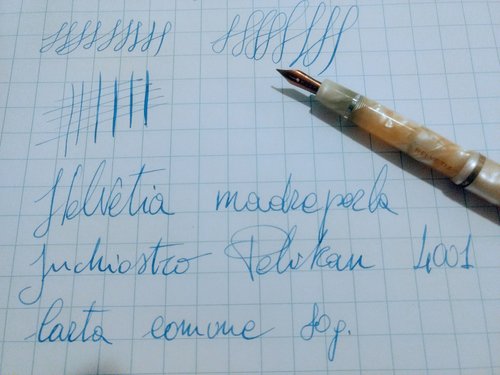 Helvetia madreperla
Inchiostro Pelikan 4001
Carta comune 80g.